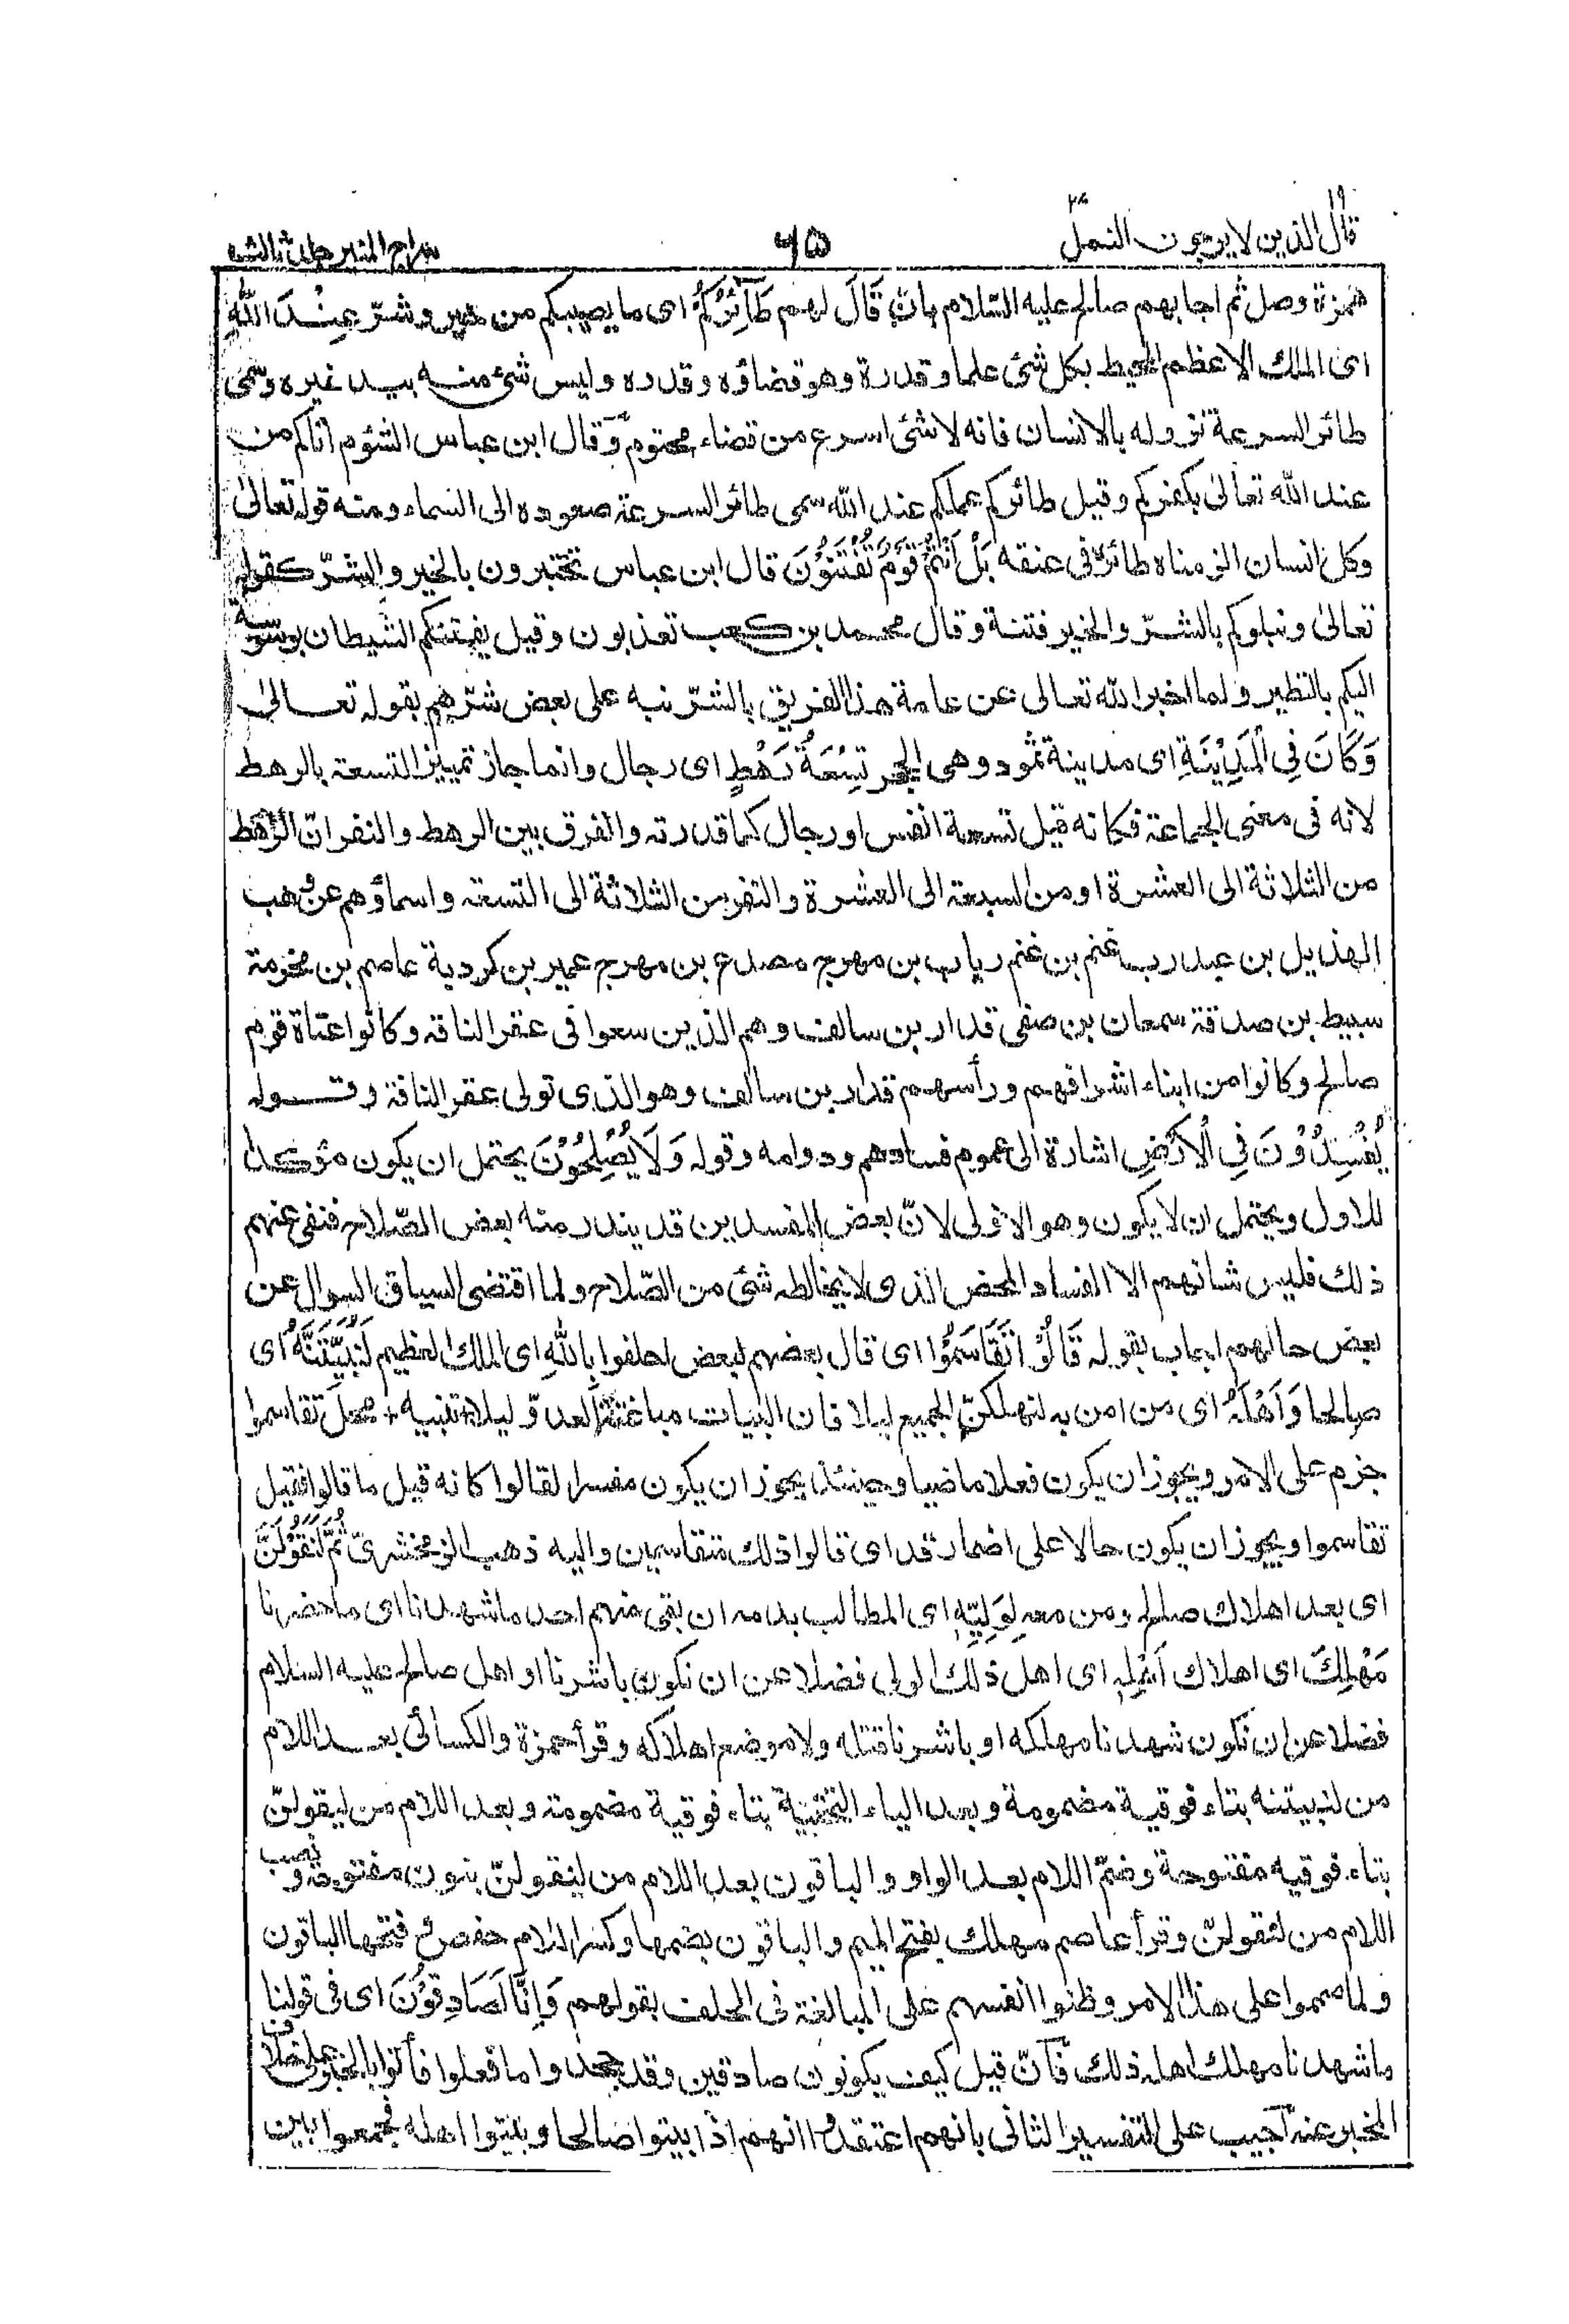 قال الذين لا يرجون النمل ٦٥ سراج المنير جلد ثالث
همزة وصل ثم اجابهم صالح عليه السّلام بان قَالَ لهم طَآئِرُكُمْ اى ما يصيبكم من خير وشرّ عِنْدَ اللّٰهِ
اى الملك الاعظم المحيط بكل شئ علما وقدرة وهو قضاؤه وقدره وليس شئ منه بيد غيره وسمى
طائر السرعة نزوله بالانسان فانه لا شئ اسرع من قضاء محتوم وقال ابن عباس الشؤم اتاكم من
عند الله تعالىٰ بكفركم وقيل طائركم عملكم عند الله سمى طائر السرعة صعوده الى السماء ومنه قوله تعالىٰ
وكل انسان الزمناه طائره فى عنقه بَلْ اَنْتُمْ قَوْمٌ تُفْتَنُوْنَ قال ابن عباس تختبرون بالخير والشرّ كقوله
تعالىٰ ونبلوكم بالشرّ والخير فتنة وقال محمد بن كعب تعذبون وقيل يفتنكم الشيطان بوسوسة
اليكم بالتطير ولما اخبر الله تعالى عن عامة هذا الفريق بالشرّ نبه على بعض شرّهم بقوله تعالىٰ
وَكَانَ فِي الْمَدِيْنَةِ اى مدينة ثمود وهى الحجر تِسْعَةُ رَهْطٍ اى رجال وانما جاز تمييز التسعة بالرهط
لانه فى معنى الجماعة فكانه قيل تسعة انفس او رجال كما قدرته والفرق بين الرهط والنفر انّ الرهط
من الثلاثة الى العشرة او من السبعة الى العشرة والنفر من الثلاثة الى التسعة واسماؤهم عن وهب
الهذيل بن عبد رب غنم بن غنم رياب بن مهرج مصدع بن مهرج عمير بن كردية عاصم بن مخزمة
سبيط بن صدقة سمعان بن صفى قدار بن سالف وهم الذين سعوا فى عقر الناقة وكانوا عتاة قوم
صالح وكانوا من ابناء اشرافهم ورأسهم قدار بن سالف وهو الذى تولى عقر الناقة وقوله
يُفْسِدُوْنَ فِي الْاَرْضِ اشارة الى عموم فسادهم ودوامه وقوله وَلَا يُصْلِحُوْنَ يحتمل ان يكون مؤكدا
للاول ويحتمل ان لا يكون وهو الاولى لانّ بعض المفسدين قد يندر منه بعض الصّلاح فنفى عنهم
ذلك فليس شانهم الا الفساد المحض الذى لا يخالطه شئ من الصّلاح ولما اقتضى السياق السوال عن
بعض حالهم اجاب بقوله قَالُوْا تَقَاسَمُوْا اى قال بعضهم لبعض احلفوا بِاللّٰهِ اى الملك العظيم لَنُبَيِّتَنَّهُ اى
صالحا وَاَهْلَهُ اى من امن به لنهلكنّ الجميع ليلا فان البيات مباغتة العدوّ ليلا تنبيه محل تقاسموا
جزم على الامر ويجوز ان يكون فعلا ماضيا وحينئذ يجوز ان يكون مفسرا لقالوا كانه قيل ما قالوا فقيل
تقاسموا ويجوز ان يكون حالا على اضمار قد اى قالوا ذلك متقاسمين واليه ذهب الزمخشرىّ ثُمَّ لَنَقُوْلَنَّ
اى بعد اهلاك صالح ومن معه لِوَلِيِّهٖ اى المطالب بدمه ان بقى منهم احد ما شهدنا اى ما حضرنا
مَهْلِكَ اى اهلاك اَهْلِهٖ اى اهل ذلك الولى فضلا عن ان نكون باشرنا او اهل صالح عليه السلام
فضلا عن ان نكون شهدنا مهلكه او باشرنا قتله ولا موضع اهلاكه وقرأ حمزة والكسائى بعد اللام
من لنبيتنه بتاء فوقية مضمومة وبعد الياء التحتية بتاء فوقية مضمومة وبعد اللام من ليقولنّ
بتاء فوقيه مفتوحة وضمّ اللام بعد الواو والباقون بعد اللام من لنقولنّ بنون مفتوحة ونصب
اللام من لنقولنّ وقرأ عاصم مهلك بفتح الميم والباقون بضمها وكسر اللام حفص وفتحها الباقون
ولما صمموا على هذا الامر وظنوا انفسهم على المبالغة فى الحلف بقولهم وَاِنَّا لَصَادِقُوْنَ اى فى قولنا
ما شهدنا مهلك اهله ذلك فانّ قيل كيف يكونون صادقين وقد جحدوا ما فعلوا فأتوا بالخبر على خلاف
المخبر عنه اجيب على التفسير الثانى بانهم اعتقدوا انهم اذا بيتوا صالحا وبيتوا اهله فجمعوا بين